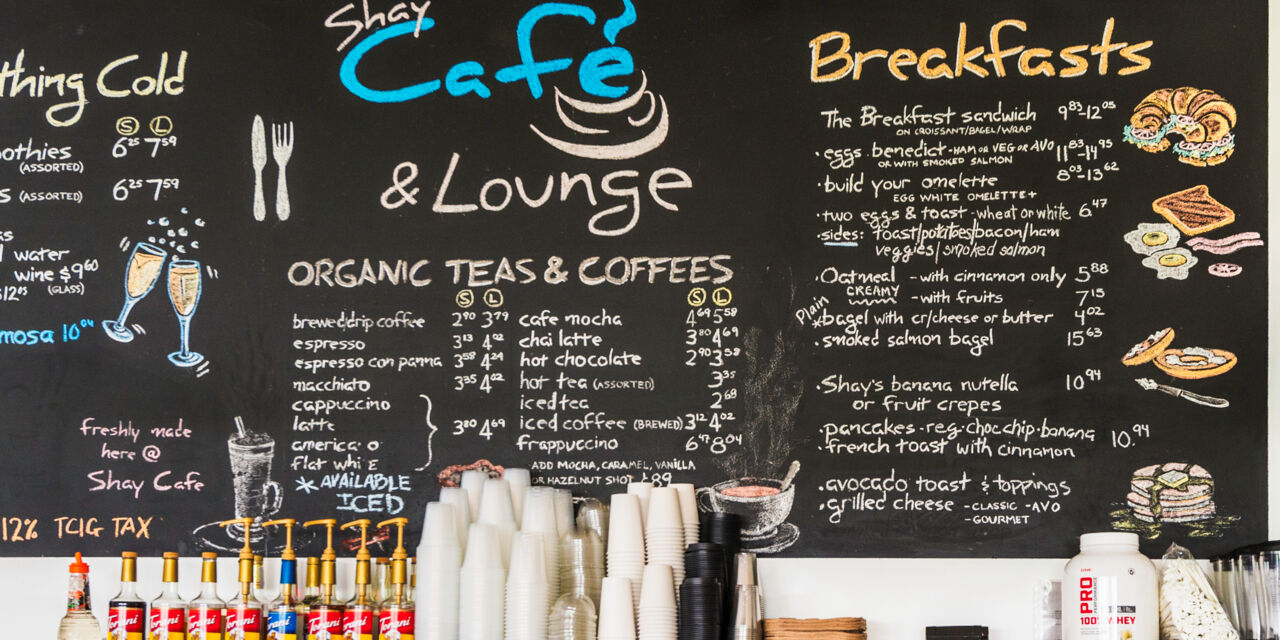 Shay
Café
& Lounge
thing Cold
S L
oothies 6 25 7 59
(ASSORTED)
s (ASSORTED) 6 25 7 59
water
wine $9 60
(GLASS)
mosa 10 04
freshly made
here @
Shay Cafe
12% TCIG TAX
ORGANIC TEAS & COFFEES
S L
brewed/drip coffee 2 90 3 79
espresso 3 13 4 02
espresso con panna 3 58 4 24
macchiato 3 35 4 02
cappuccino
latte 3 80 4 69
america o
flat whi e
*AVAILABLE
ICED
S L
cafe mocha 4 69 5 58
chai latte 3 80 4 69
hot chocolate 2 90 3 58
hot tea (ASSORTED) 3 35
iced tea 2 68
iced coffee (BREWED) 3 12 4 02
frappuccino 6 47 8 04
ADD MOCHA, CARAMEL, VANILLA
OR HAZELNUT SHOT .89
Breakfasts
The Breakfast sandwich 9 83-12 05
ON CROISSANT/BAGEL/WRAP
·eggs benedict-HAM OR VEG OR AVO 11 83-14 95
OR WITH SMOKED SALMON
·build your omelette 8 03-13 62
EGG WHITE OMELETTE+
·two eggs & toast-wheat or white 6.47
·sides: toast/potatoes/bacon/ham
veggies/smoked salmon
·Oatmeal -with cinnamon only 5 88
CREAMY -with fruits 7 15
Plain
*bagel with cr/cheese or butter 4 02
·smoked salmon bagel 15 63
·Shay's banana nutella 10 94
or fruit crepes
·pancakes-reg·choc.chip·banana
·french toast with cinnamon 10.94
·avocado toast & toppings
·grilled cheese -CLASSIC -AVO
-GOURMET
Torani
Torani
Torani
Torani
Torani
Torani
Torani
PRO
PERFORMANCE
100% WHEY